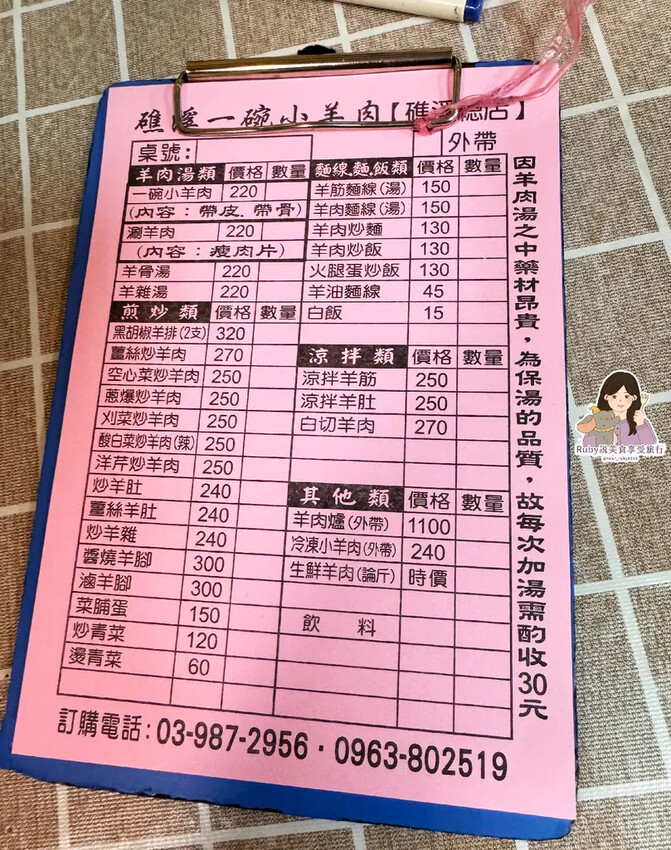 礁溪一碗小羊肉【礁溪總店】
桌號: 外帶
羊肉湯類 價格 數量
一碗小羊肉 220
(內容:帶皮.帶骨)
涮羊肉 220
(內容:瘦肉片)
羊骨湯 220
羊雜湯 220
煎炒類 價格 數量
黑胡椒羊排(2支) 320
薑絲炒羊肉 270
空心菜炒羊肉 250
蔥爆炒羊肉 250
刈菜炒羊肉 250
酸白菜炒羊肉(辣) 250
洋芹炒羊肉 250
炒羊肚 240
薑絲羊肚 240
炒羊雜 240
醬燒羊腳 300
滷羊腳 300
菜脯蛋 150
炒青菜 120
燙青菜 60
麵線.麵.飯類 價格 數量
羊筋麵線(湯) 150
羊肉麵線(湯) 150
羊肉炒麵 130
羊肉炒飯 130
火腿蛋炒飯 130
羊油麵線 45
白飯 15
涼拌類 價格 數量
涼拌羊筋 250
涼拌羊肚 250
白切羊肉 270
其他類 價格 數量
羊肉爐(外帶) 1100
冷凍小羊肉(外帶) 240
生鮮羊肉(論斤) 時價
飲料
因羊肉湯之中藥材昂貴,為保湯的品質,故每次加湯需酌收30元
訂購電話:03-987-2956·0963-802519
Ruby說美食享受旅行